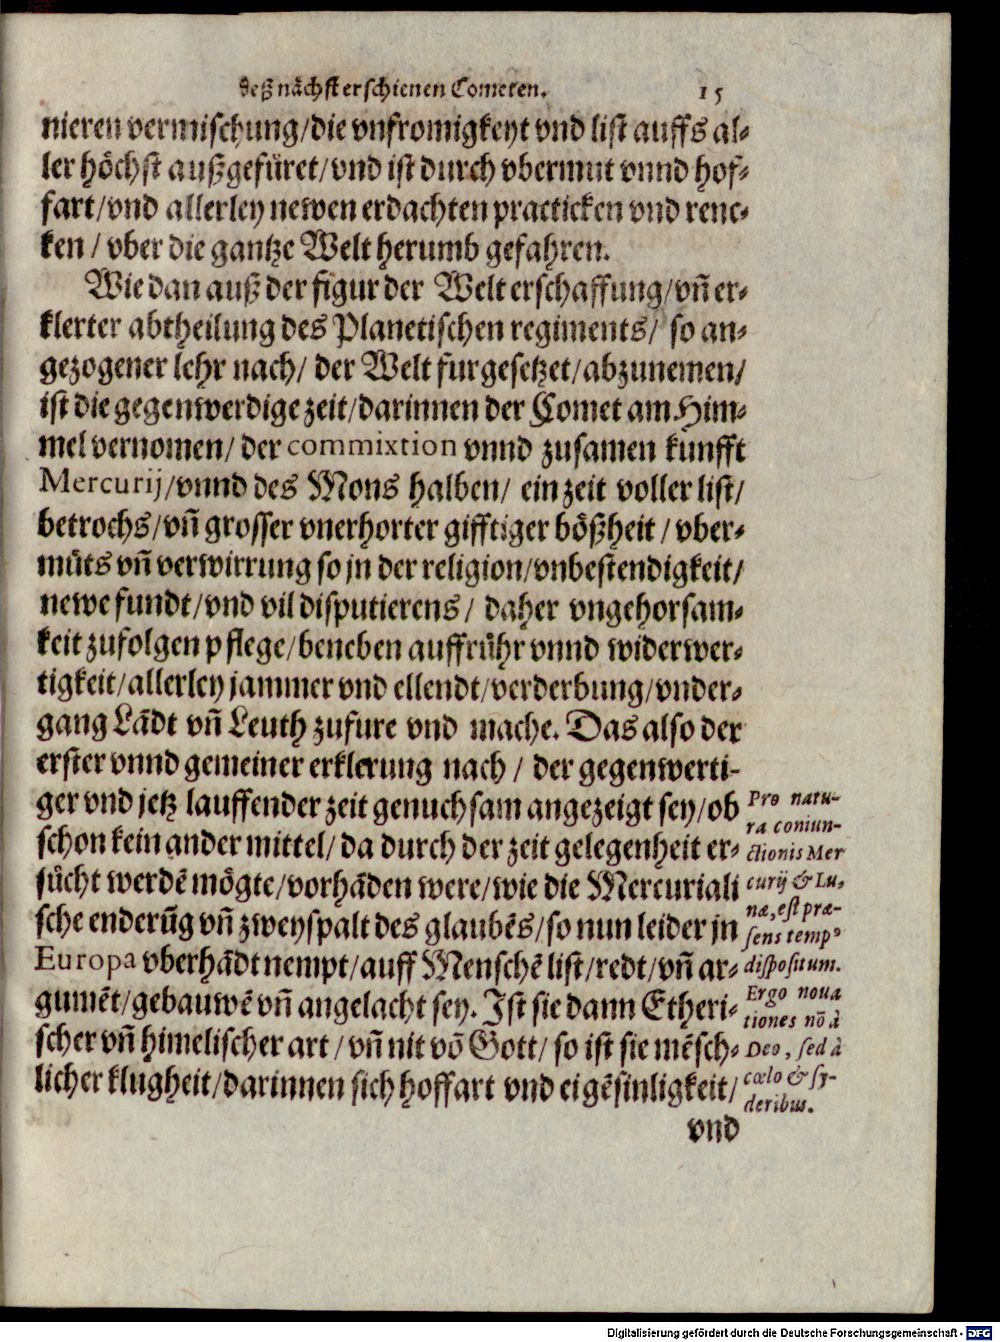 deß nächst erschienen Cometen. 15
nieren vermischung/die vnfromigkeyt vnd list auffs al-
ler höchst außgefüret/vnd ist durch vbermut vnnd hof-
fart/vnd allerley newen erdachten practicken vnd renc-
ken / vber die gantze Welt herumb gefahren.
Wie dan auß der figur der Welt erschaffung/vñ er-
klerter abtheilung des Planetischen regiments/ so an-
gezogener lehr nach/ der Welt furgesetzet/abzunemen/
ist die gegenwerdige zeit/darinnen der Comet am Him-
mel vernomen/ der commixtion vnnd zusamen kunfft
Mercurij/vnnd des Mons halben/ ein zeit voller list/
betrochs/vñ grosser vnerhorter gifftiger bößheit / vber-
müts vñ verwirrung so jn der religion/vnbestendigkeit/
newe fundt/vnd vil disputierens/ daher vngehorsam-
keit zufolgen pflege/beneben auffrühr vnnd widerwer-
tigkeit/allerley jammer vnd ellendt/verderbung/vnder-
gang Lãdt vñ Leuth zufure vnd mache. Das also der
erster vnnd gemeiner erklerung nach / der gegenwerti-
ger vnd jetz lauffender zeit genuchsam angezeigt sey/ob
schon kein ander mittel/da durch der zeit gelegenheit er-
sücht werdẽ mögte/vorhãden were/wie die Mercuriali
sche enderũg vñ zweyspalt des glaubẽs/so nun leider jn
Europa vberhãdt nempt/auff Menschẽ list/redt/vñ ar-
gumẽt/gebauwẽ vñ angelacht sey. Ist sie dann Etheri-
scher vñ himelischer art / vñ nit võ Gott/ so ist sie mẽsch-
licher klugheit/darinnen sich hoffart vnd eigẽsinligkeit/
vnd
Pro natu-
ra coniun-
ctionis Mer
curij & Lu-
næ, est præ-
sens tempꝰ
dispositum.
Ergo noua
tiones nõ à
Deo, sed à
cœlo & sy-
deribus.
Digitalisierung gefördert durch die Deutsche Forschungsgemeinschaft - DFG